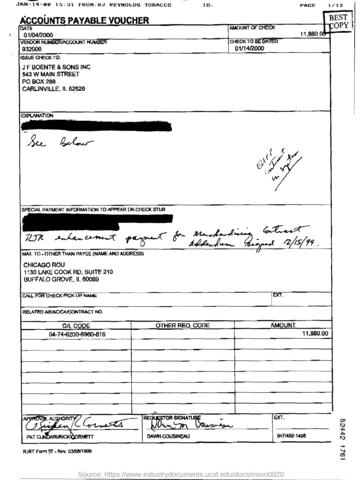 JAN-14-00 15:31 FROM:RJ REYNOLDS TOBACCO ID: PAGE 1/12
ACCOUNTS PAYABLE VOUCHER
BEST COPY
DATE
01/04/2000
AMOUNT OF CHECK
11,880.00
VENDOR NUMBER/ACCOUNT NUMBER
932000
CHECK TO BE DATED
01/14/2000
ISSUE CHECK TO:
J F BOENTE & SONS INC
543 W MAIN STREET
PO BOX 288
CARLINVILLE, IL 62626
EXPLANATION
See Below
SPECIAL PAYMENT INFORMATION TO APPEAR ON CHECK STUB
RJR enhancement payment for Merchandising Contract
Addendum signed 12/15/99.
MAIL TO - OTHER THAN PAYEE (NAME AND ADDRESS)
CHICAGO ROU
1130 LAKE COOK RD, SUITE 210
BUFFALO GROVE, IL 60089
CALL FOR CHECK PICK UP NAME:
EXT.
RELATED AR/ACCA/CONTRACT NO.
G/L CODE OTHER REQ. CODE AMOUNT
04-74-6200-8960-816 11,880.00
APPROVAL AUTHORITY
REQUESTOR SIGNATURE
EXT.
DAWN COUSINEAU
847/459-1408
RJRT Form 57 - Rev. 03/08/1999
52442 1761
Source: https://www.industrydocuments.ucsf.edu/docs/msvn0020